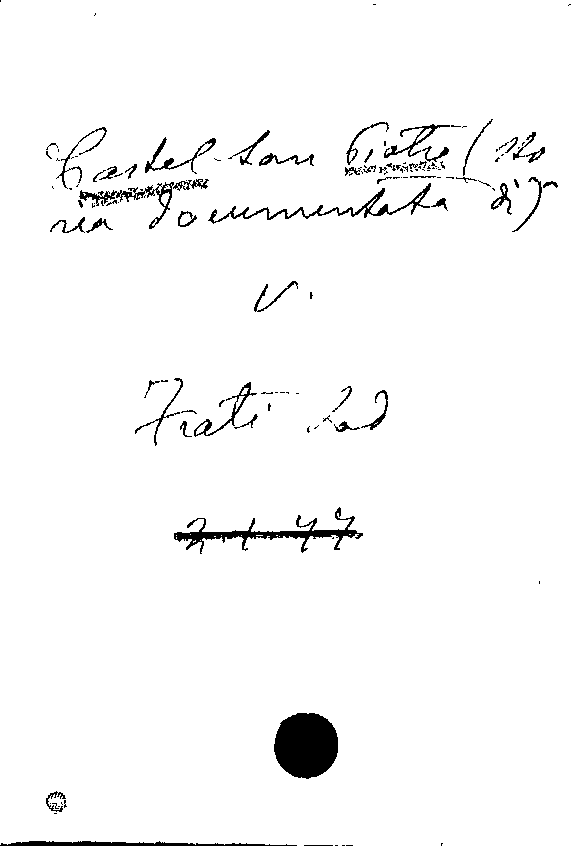 Castel San Pietro (sto
ria documentata di)
V.
Frati Lod